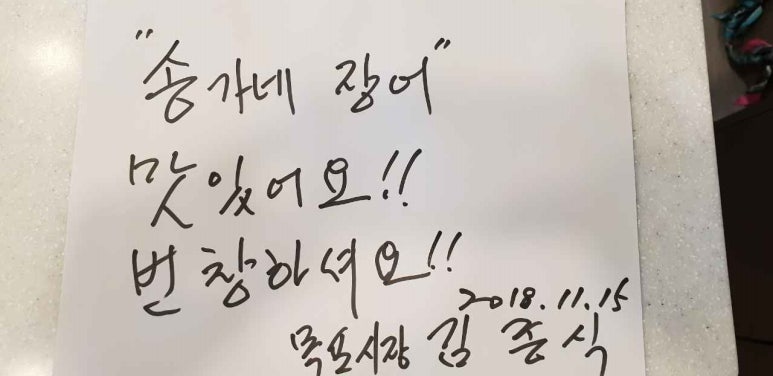 "송가네 장어"
맛있어요!!
번창하셔요!!
2018.11.15
목포시장 김종식